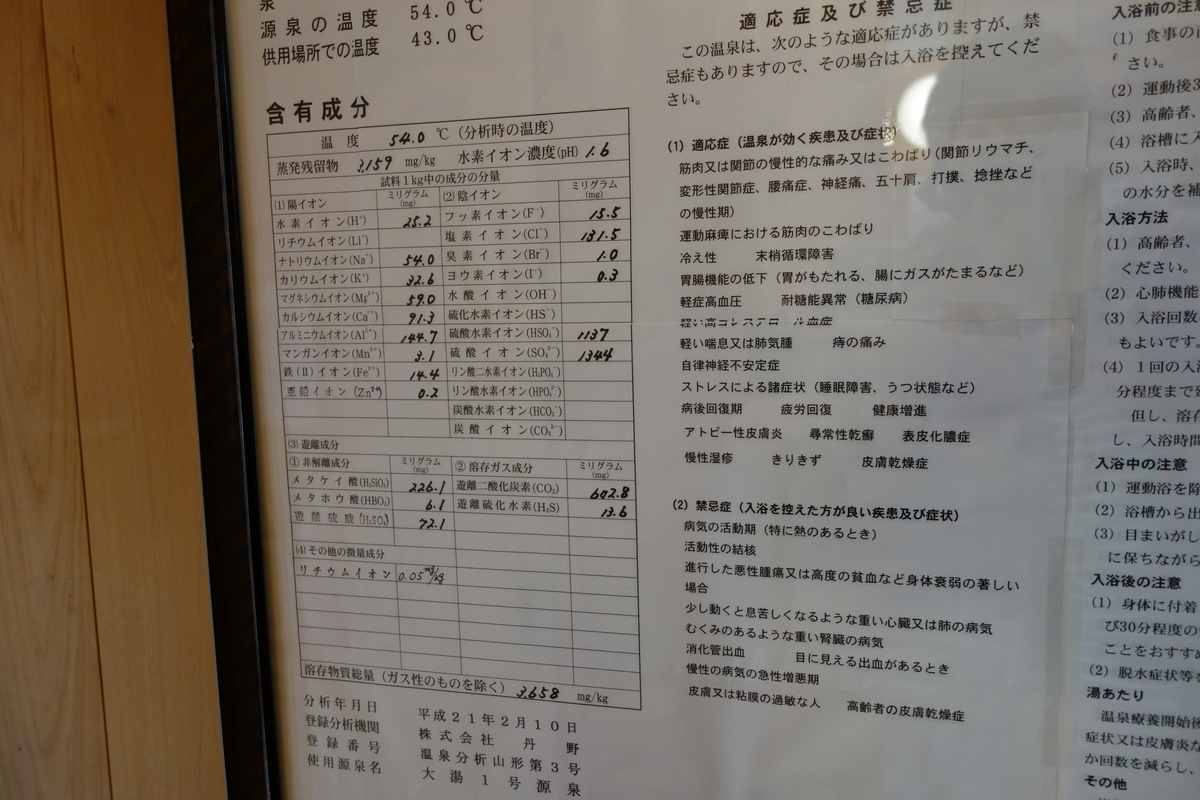 泉
源泉の温度 54.0 ℃
供用場所での温度 43.0 ℃
含有成分
温度 54.0 ℃ (分析時の温度)
蒸発残留物 3,159 mg/kg 水素イオン濃度(pH) 1.6
試料1kg中の成分の分量
(1) 陽イオン ミリグラム(mg) (2) 陰イオン ミリグラム(mg)
水素イオン(H⁺) 25.2 フッ素イオン(F⁻) 15.5
リチウムイオン(Li⁺) 塩素イオン(Cl⁻) 131.5
ナトリウムイオン(Na⁺) 54.0 臭素イオン(Br⁻) 1.0
カリウムイオン(K⁺) 32.6 ヨウ素イオン(I⁻) 0.3
マグネシウムイオン(Mg²⁺) 59.0 水酸イオン(OH⁻)
カルシウムイオン(Ca²⁺) 91.3 硫化水素イオン(HS⁻)
アルミニウムイオン(Al³⁺) 144.7 硫酸水素イオン(HSO₄⁻) 1137
マンガンイオン(Mn²⁺) 3.1 硫酸イオン(SO₄²⁻) 1344
鉄(Ⅱ)イオン(Fe²⁺) 14.4 リン酸二水素イオン(H₂PO₄⁻)
亜鉛イオン(Zn²⁺) 0.2 リン酸水素イオン(HPO₄²⁻)
炭酸水素イオン(HCO₃⁻)
炭酸イオン(CO₃²⁻)
(3) 遊離成分
① 非解離成分 ミリグラム(mg) ② 溶存ガス成分 ミリグラム(mg)
メタケイ酸(H₂SiO₃) 226.1 遊離二酸化炭素(CO₂) 602.8
メタホウ酸(HBO₂) 6.1 遊離硫化水素(H₂S) 13.6
遊離硫酸(H₂SO₄) 72.1
(4) その他の微量成分
リチウムイオン 0.05 mg/kg
溶存物質総量(ガス性のものを除く) 3,658 mg/kg
分析年月日 平成21年2月10日
登録分析機関 株式会社 丹野
登録番号 温泉分析山形第3号
使用源泉名 大湯1号源泉
適応症及び禁忌症
この温泉は、次のような適応症がありますが、禁
忌症もありますので、その場合は入浴を控えてくだ
さい。
(1) 適応症(温泉が効く疾患及び症状)
筋肉又は関節の慢性的な痛み又はこわばり(関節リウマチ、
変形性関節症、腰痛症、神経痛、五十肩、打撲、捻挫など
の慢性期)
運動麻痺における筋肉のこわばり
冷え性 末梢循環障害
胃腸機能の低下(胃がもたれる、腸にガスがたまるなど)
軽症高血圧 耐糖能異常(糖尿病)
軽い高コレステロール血症
軽い喘息又は肺気腫 痔の痛み
自律神経不安定症
ストレスによる諸症状(睡眠障害、うつ状態など)
病後回復期 疲労回復 健康増進
アトピー性皮膚炎 尋常性乾癬 表皮化膿症
慢性湿疹 きりきず 皮膚乾燥症
(2) 禁忌症(入浴を控えた方が良い疾患及び症状)
病気の活動期(特に熱のあるとき)
活動性の結核
進行した悪性腫瘍又は高度の貧血など身体衰弱の著しい
場合
少し動くと息苦しくなるような重い心臓又は肺の病気
むくみのあるような重い腎臓の病気
消化管出血 目に見える出血があるとき
慢性の病気の急性増悪期
皮膚又は粘膜の過敏な人 高齢者の皮膚乾燥症
入浴前の注意
(1) 食事の
さい。
(2) 運動後3
(3) 高齢者、
(4) 浴槽に入
(5) 入浴時、
の水分を補
入浴方法
(1) 高齢者、
ください。
(2) 心肺機能
(3) 入浴回数
もよいです。
(4) 1回の入
分程度まで
但し、溶存
し、入浴時間
入浴中の注意
(1) 運動浴を除
(2) 浴槽から出
(3) 目まいがし
に保ちながら
入浴後の注意
(1) 身体に付着
び30分程度の
ことをおすすめ
(2) 脱水症状等
湯あたり
温泉療養開始後
症状又は皮膚炎な
か回数を減らし、
その他